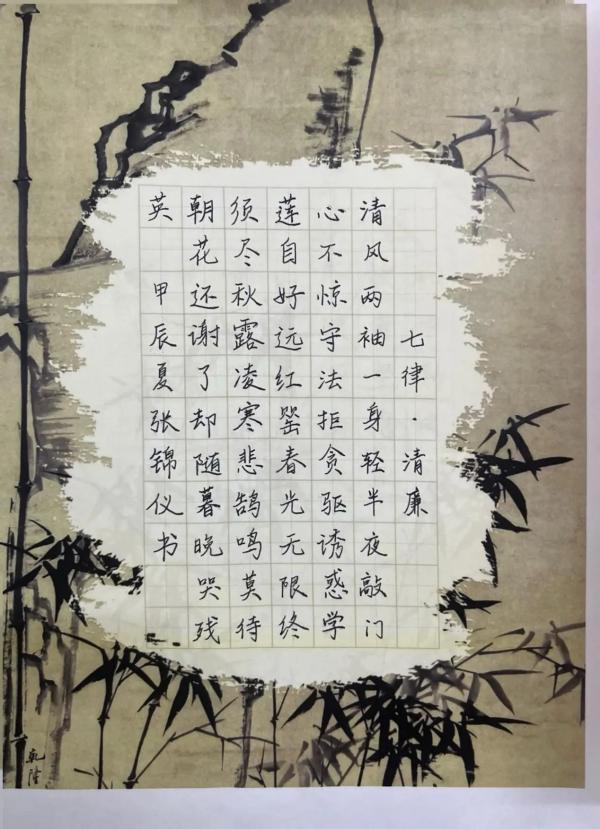 七律·清廉
清风两袖一身轻半夜敲门
心不惊守法拒贪驱诱惑学
莲自好远红罂春光无限终
须尽秋露凌寒悲鹄鸣莫待
朝花还谢了却随暮晚哭残
英
甲辰夏张锦仪书
乾隆